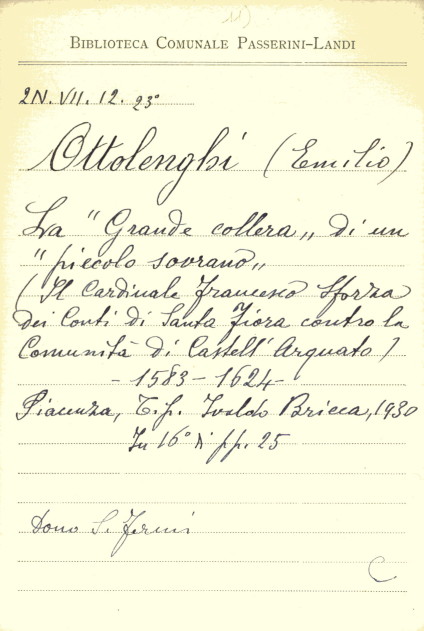 11)
BIBLIOTECA COMUNALE PASSERINI-LANDI
2N. VII. 12. 23°
Ottolenghi (Emilio)
La "Grande collera„ di un
"piccolo sovrano„
(Il Cardinale Francesco Sforza
dei Conti di Santa Fiora contro la
Comunità di Castell'Arquato)
- 1583 - 1624 -
Piacenza, Tip. Ivaldo Bricca, 1930
In 16° di pp. 25
Dono S. Fermi
C